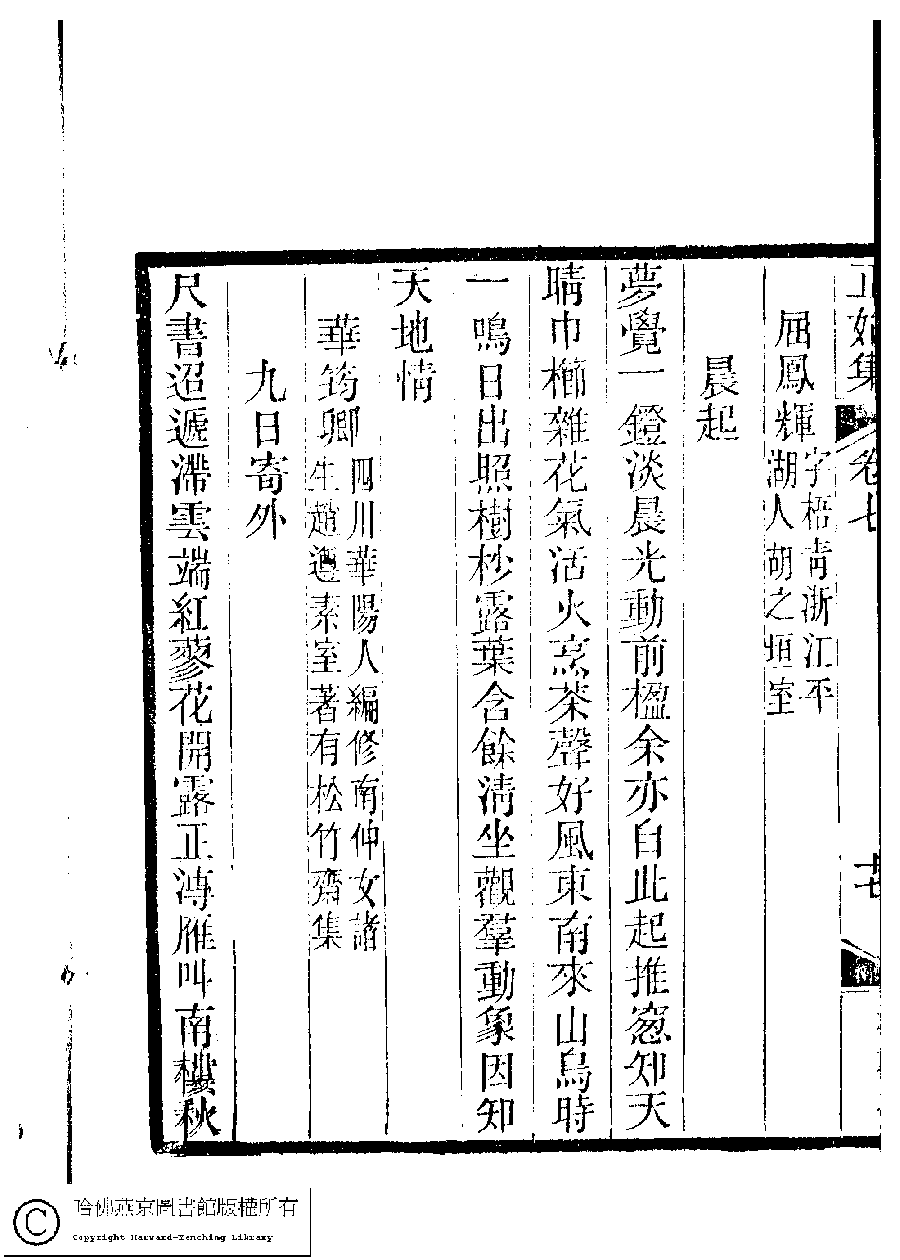 正始集 卷七 廿七
屈鳳輝 字梧靑浙江平湖人胡之垣室
晨起
夢覺一鐙淡晨光動前楹余亦自此起推窻知天
晴巾櫛雜花氣活火烹茶聲好風東南來山鳥時
一鳴日出照樹杪露葉含餘淸坐觀羣動象因知
天地情
華筠卿 四川華陽人編修南仲女諸生趙遵素室著有松竹齋集
九日寄外
尺書迢遞滯雲端紅蓼花開露正漙雁叫南樓秋
哈佛燕京圖書館版權所有
Copyright Harvard-Yenching Library